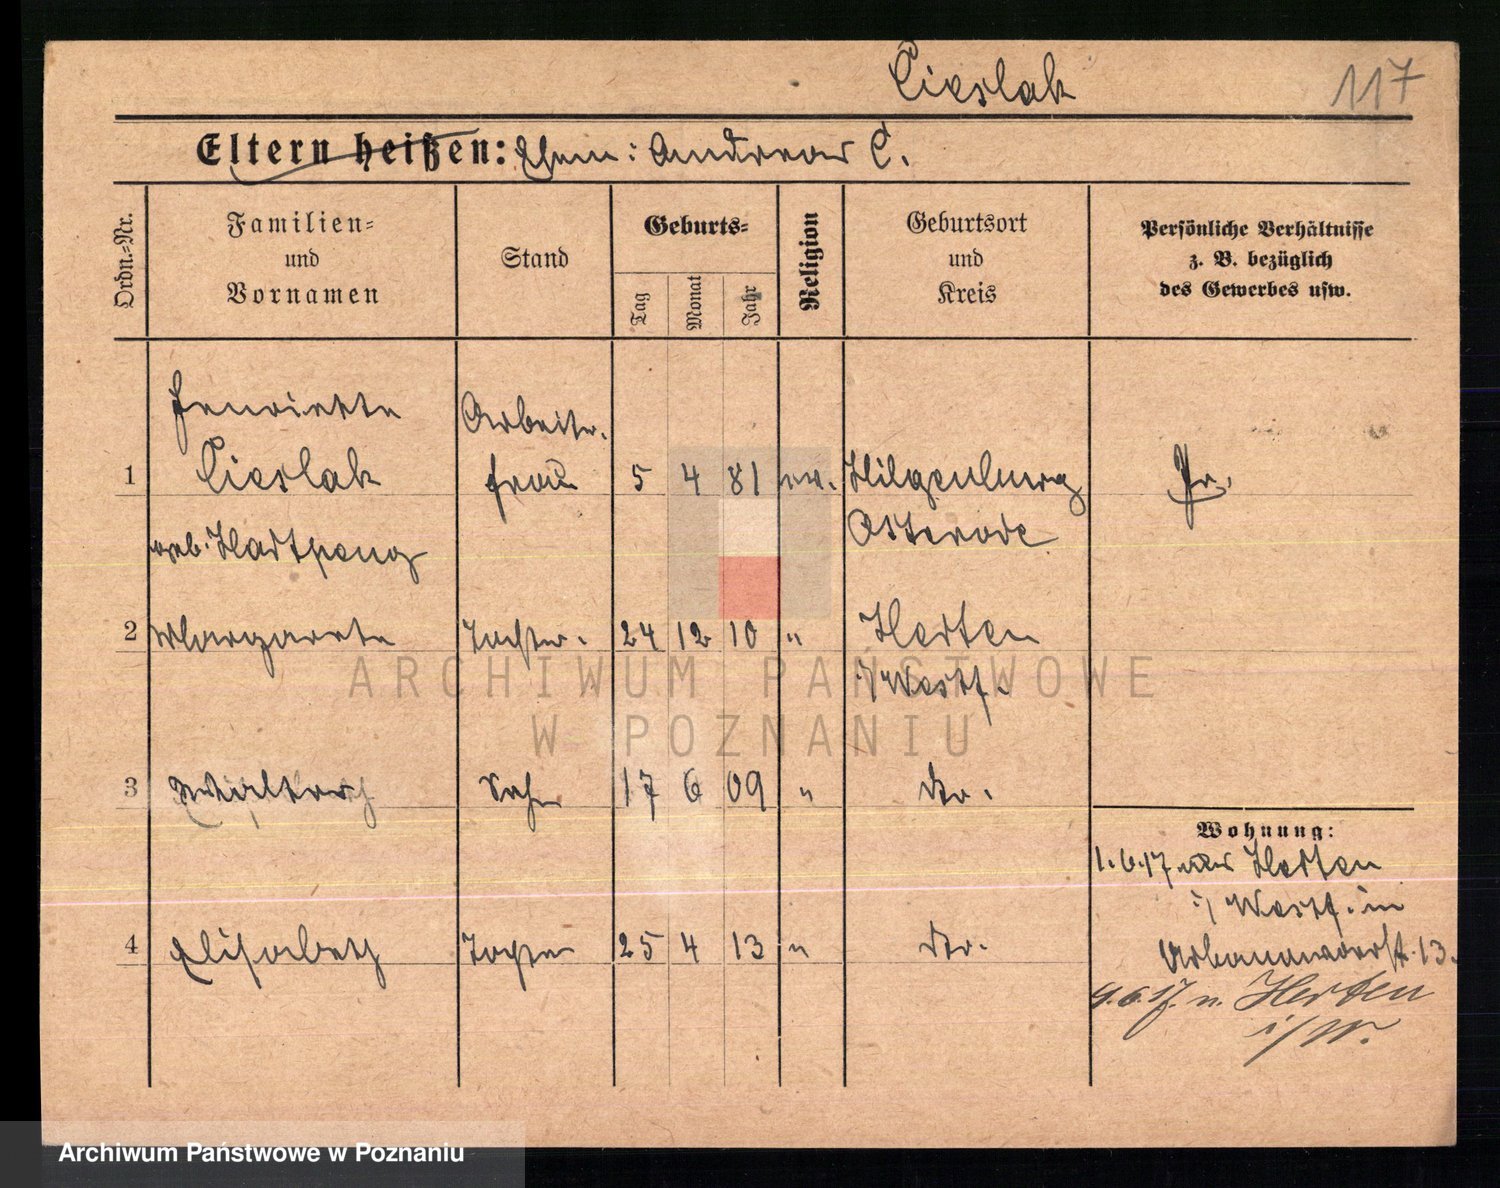 Cieslak
117
Eltern heißen: Ehem: Andreas C.
Ordn.-Nr.
Familien-
und
Vornamen
Stand
Geburts-
Tag
Monat
Jahr
Religion
Geburtsort
und
Kreis
Persönliche Verhältnisse
z. B. bezüglich
des Gewerbes usw.
Henriette
Arbeiter.
1 Cieslak frau 5 4 81 ev. Hilgenburg Pr.
geb. Osterode
2 Margarete Tochter. 24 12 10 " Herten
i/Westf.
ARCHIWUM PAŃSTWOWE
W POZNANIU
3 Sohn 17 6 09 " dto.
Wohnung:
1.6.17 aus Herten
i/Westf. in
4 Elisabeth Tochter 25 4 13 " dto.
13.
9.6.17. n. Herten
i/W.
Archiwum Państwowe w Poznaniu